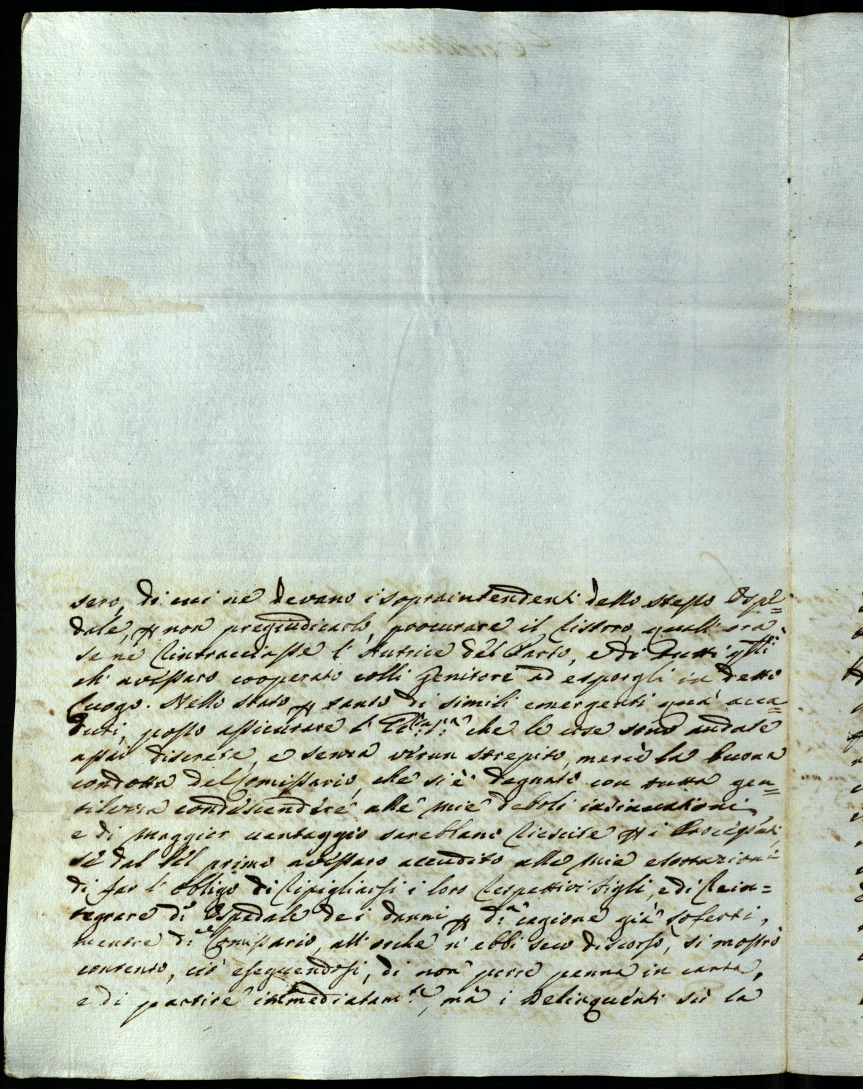 sero, di cui ne devano i sopraintendenti dello stesso Ospi=
dale, p non pregiudicarlo, procurare il ristoro, quall'ora
se ne rintracciasse l'Autrice del Parto, e di tutti q.lli
ch'avessaro cooperato colli Genitori ad esporgli in detto
Luogo. Nello stato p tanto di simili emergenti quà acca=
duti, posso assicurare l' che le cose sono andate
assai discrete, e senza verun strepito, mercè la buona
condotta del Comissario, che si è degnato con tutta gen=
tilezza condescendere alle mie deboli insinuazioni
e di maggior vantaggio sarebbano riescite p i
se dal bel primo avessaro accudito alle mie esortazioni
di far l'obligo di ripigliarsi i loro respettivi figli, e di rein=
tegrare d.o Ospedale dei danni p d.a cagione già soferti,
mentre d.o Comissario, all'orchè n'ebbi seco discorso, si mostrò
contento, ciò eseguendosi, di non porre penna in carta,
e di partire immediatam.te, mà i Delinquenti sù la